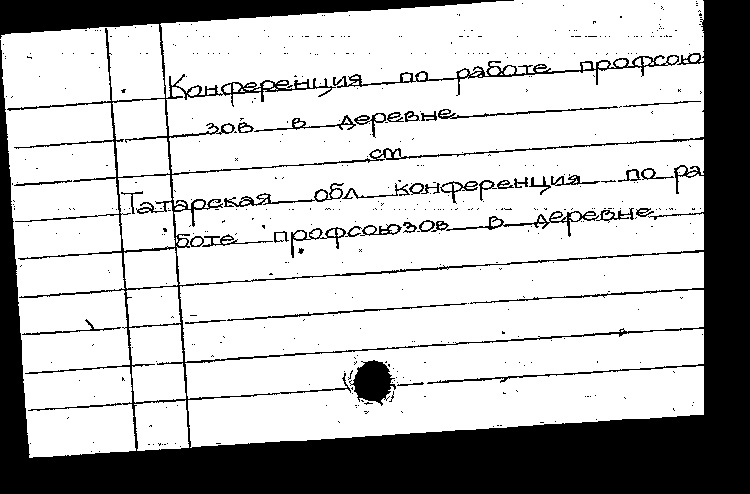 Конференция по работе профсою
зов в деревне
см
Татарская обл конференция по ра
боте профсоюзов в деревне.